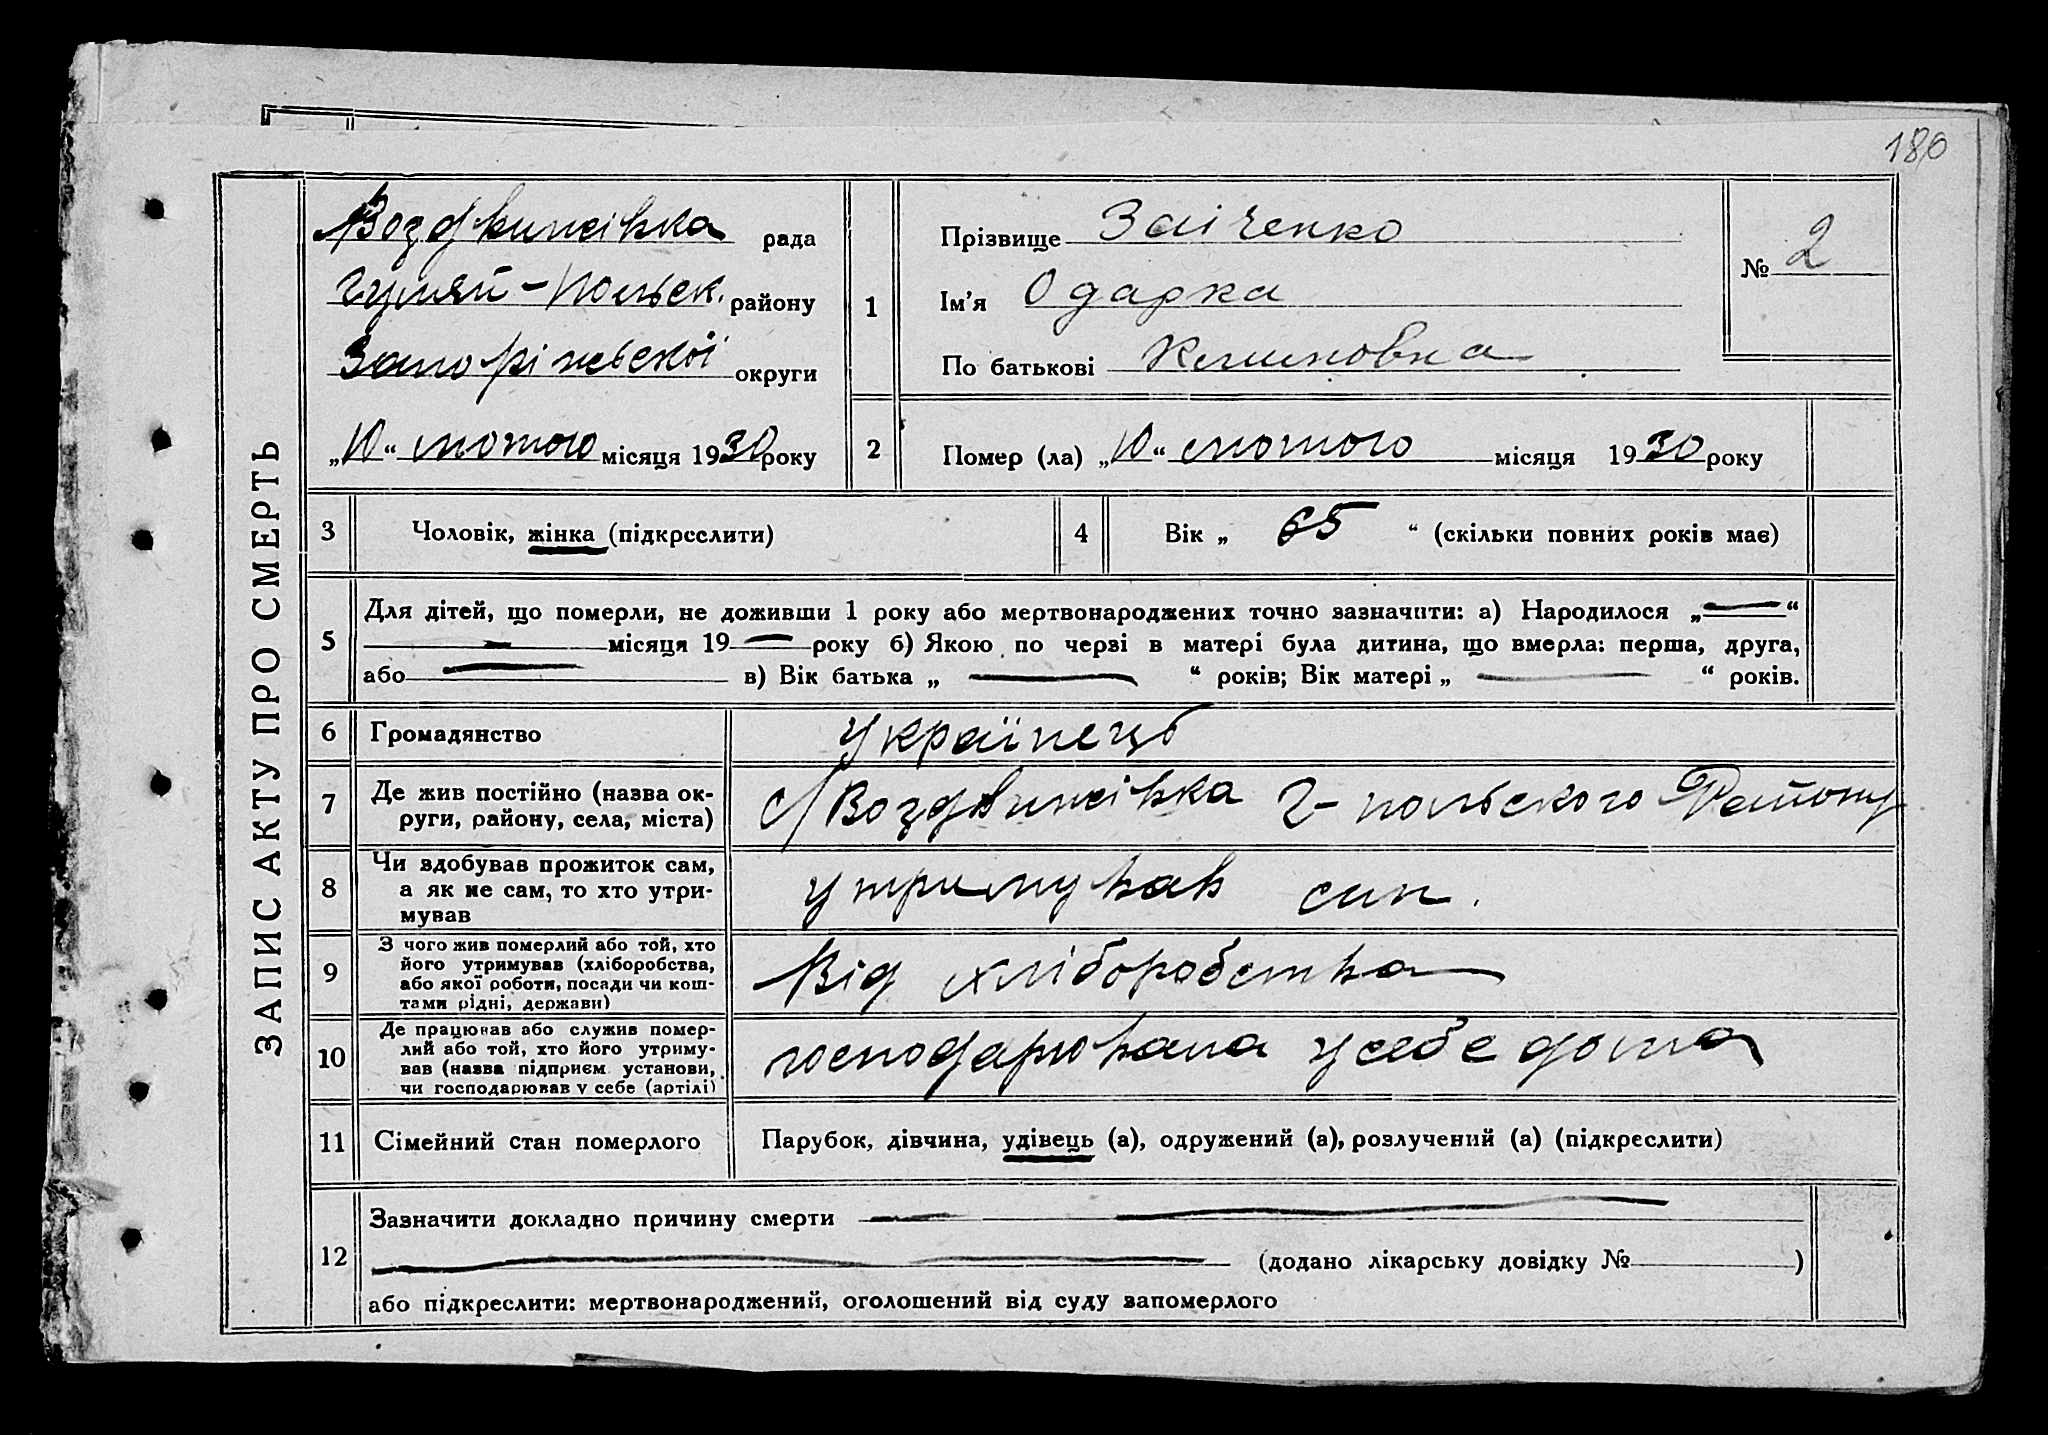 180
ЗАПИС АКТУ ПРО СМЕРТЬ
Воздвижівка рада
Гуляй-Польск. району
Запоріжської округи
„10“ лютого місяця 1930 року
1
Прізвище Заіченко
Ім'я Одарка
По батькові
№ 2
2
Помер (ла) „10“ лютого місяця 1930 року
3 Чоловік, жінка (підкреслити)
4 Вік „ 65 “ (скільки повних років має)
5
Для дітей, що померли, не доживши 1 року або мертвонароджених точно зазначити: а) Народилося „—“
— місяця 19 — року б) Якою по черзі в матері була дитина, що вмерла: перша, друга,
або — в) Вік батька „ — “ років; Вік матері „ — “ років.
6 Громадянство українець
7 Де жив постійно (назва ок-
руги, району, села, міста)
с/Воздвижівка Г-польского Району
8 Чи вдобував прожиток сам,
а як не сам, то хто утри-
мував
утримував син.
9 З чого жив померлий або той, хто
його утримував (хліборобства,
або якої роботи, посади чи кош-
тами рідні, держави)
Від хліборобства
10 Де працював або служив помер-
лий або той, хто його утриму-
вав (назва підприєм. установи,
чи господарював у себе (артілі)
господарювала усебе дома
11 Сімейний стан померлого
Парубок, дівчина, удівець (а), одружений (а), розлучений (а) (підкреслити)
12
Зазначити докладно причину смерти —
— (додано лікарську довідку № )
або підкреслити: мертвонароджений, оголошений від суду запомерлого